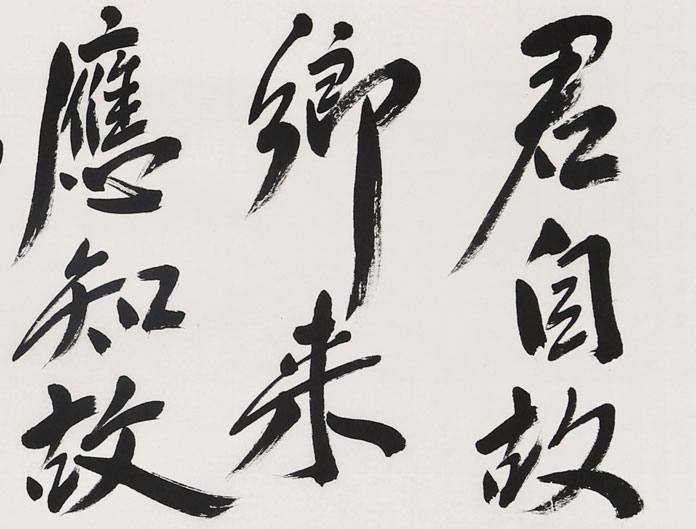 君自故
鄉来
應知故